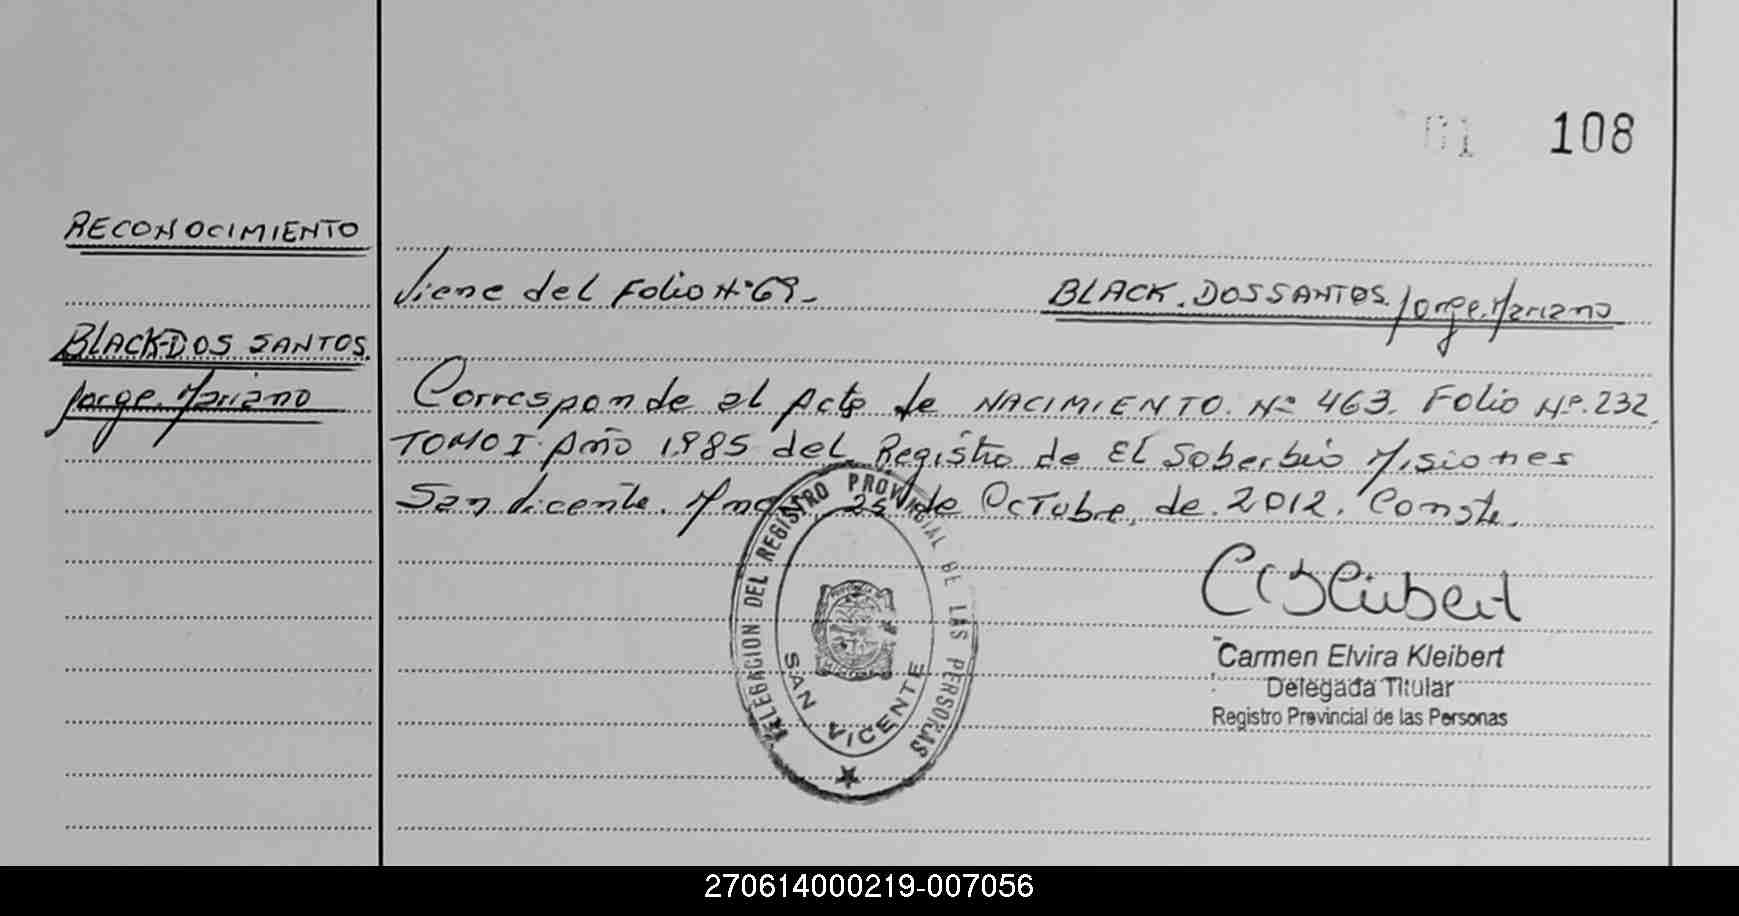 01 108
RECONOCIMIENTO
Viene del Folio Nº 69.- BLACK. DOS SANTOS. Jorge. Mariano
BLACK-DOS SANTOS.
Jorge. Mariano
Corresponde al Acta de NACIMIENTO. Nº 463. Folio Nº. 232.
TOMO I. Año 1985 del Registro de El Soberbio Misiones
San Vicente. Mnes. 25 de Octubre, de. 2012. Conste.
DELEGACION DEL REGISTRO PROVINCIAL DE LAS PERSONAS
SAN VICENTE
CEKleibert
Carmen Elvira Kleibert
Delegada Titular
Registro Provincial de las Personas
270614000219-007056